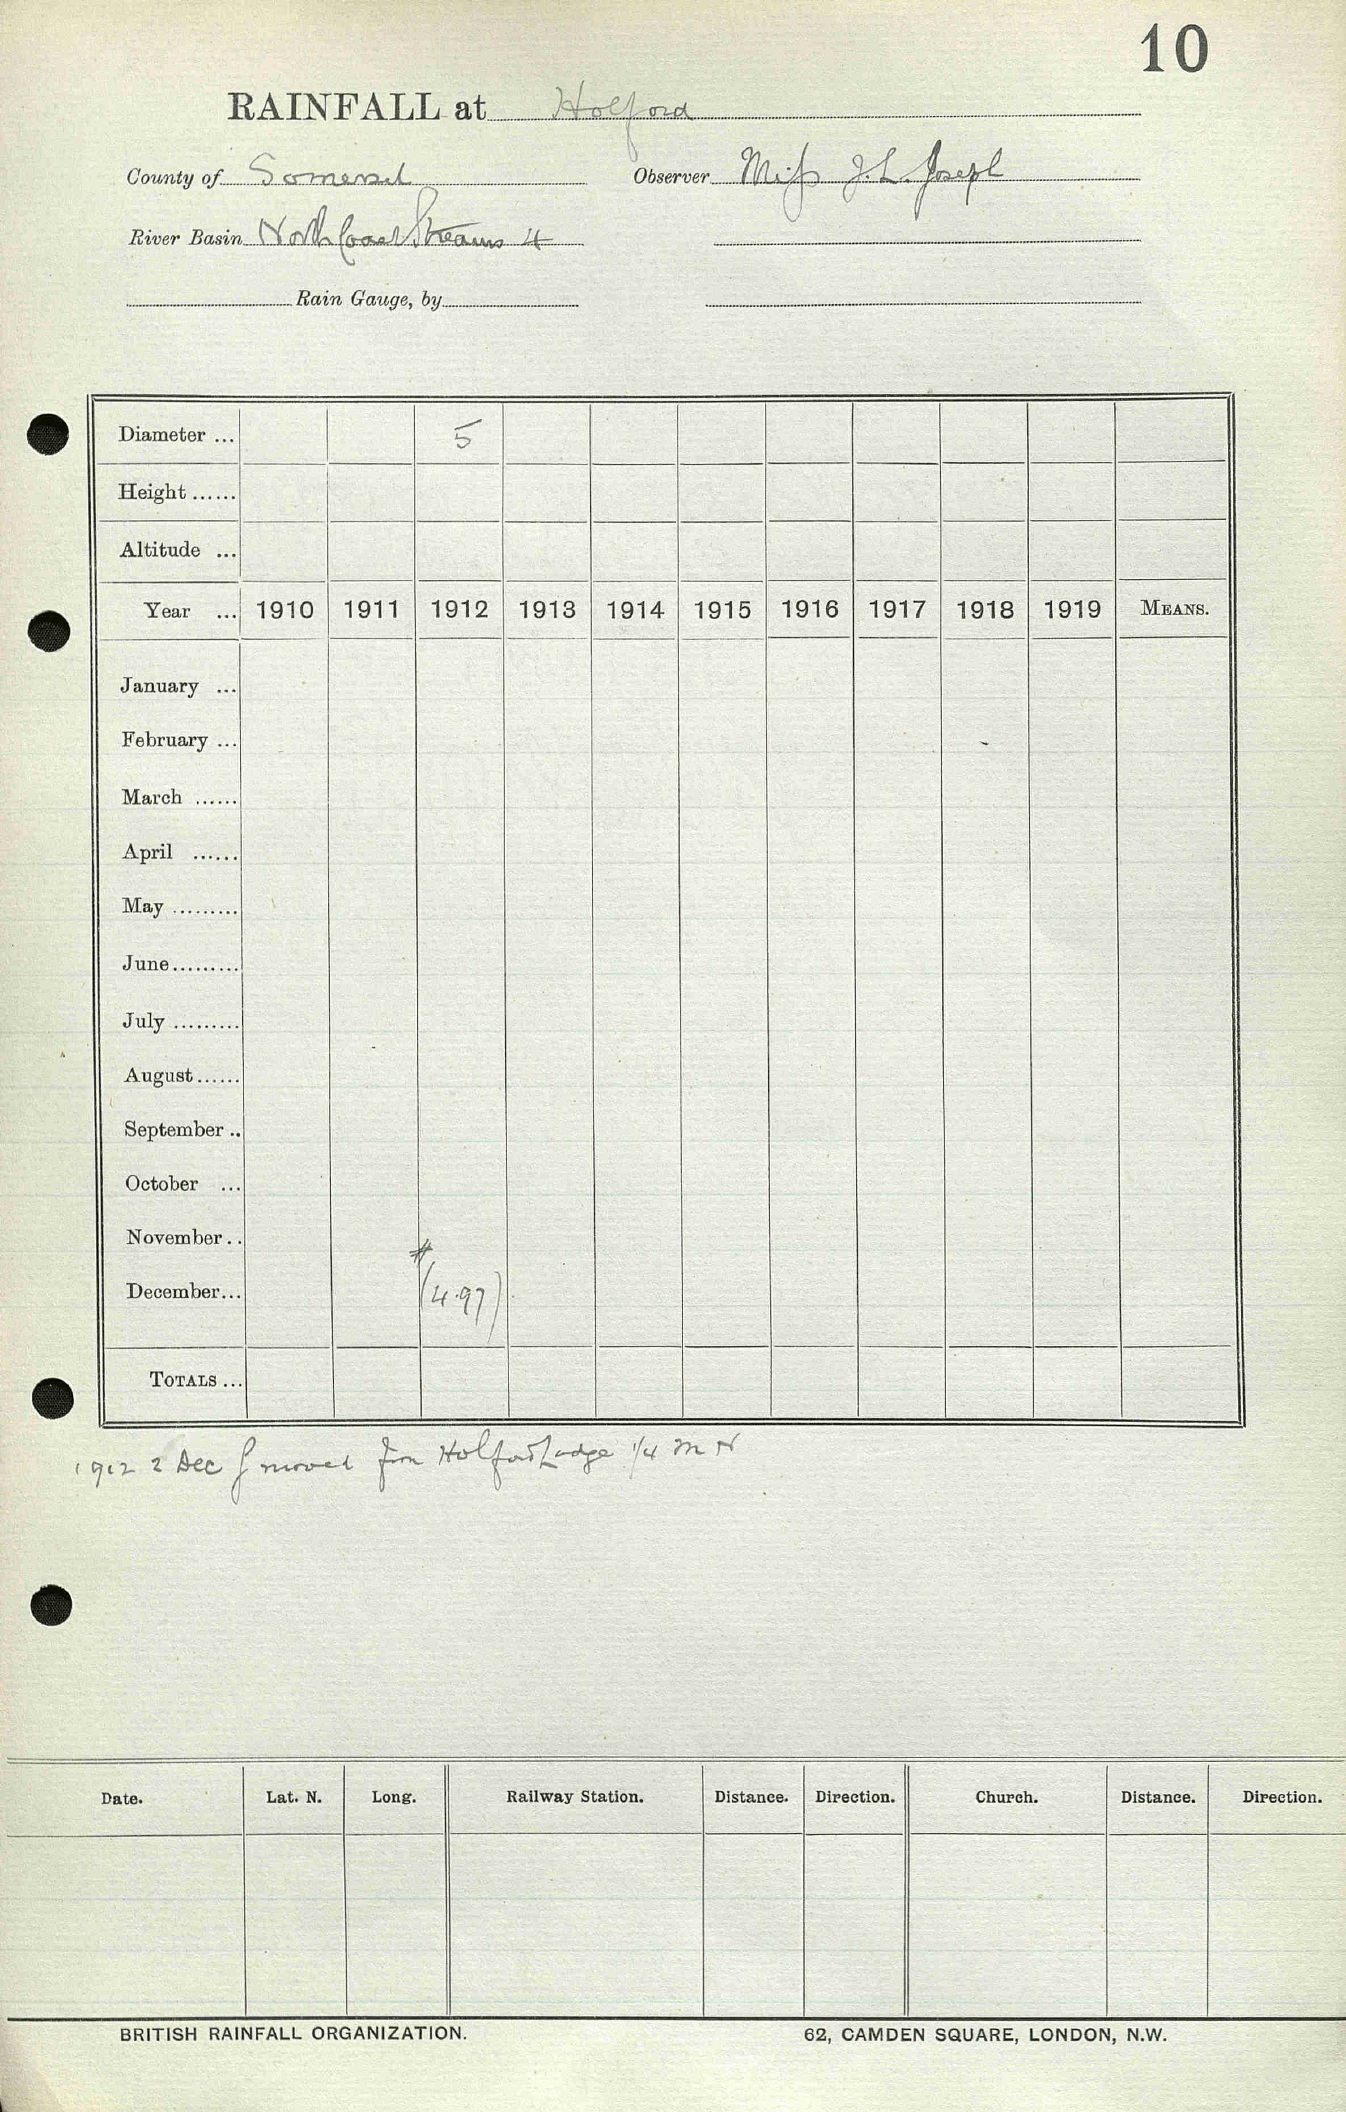 10
RAINFALL at Holford
County of Somerset Observer Miss J. L. Joseph
River Basin North Coast Streams 4
Rain Gauge, by
Diameter ... 5
Height ......
Altitude ...
Year ... 1910 1911 1912 1913 1914 1915 1916 1917 1918 1919 MEANS.
January ...
February ...
March ......
April ......
May .........
June.........
July .........
August......
September ..
October ...
November ..
#
December... (4.97)
TOTALS ...
1912 2 Dec G moved from Holford Lodge 1/4 m N
Date. Lat. N. Long. Railway Station. Distance. Direction. Church. Distance. Direction.
BRITISH RAINFALL ORGANIZATION. 62, CAMDEN SQUARE, LONDON, N.W.